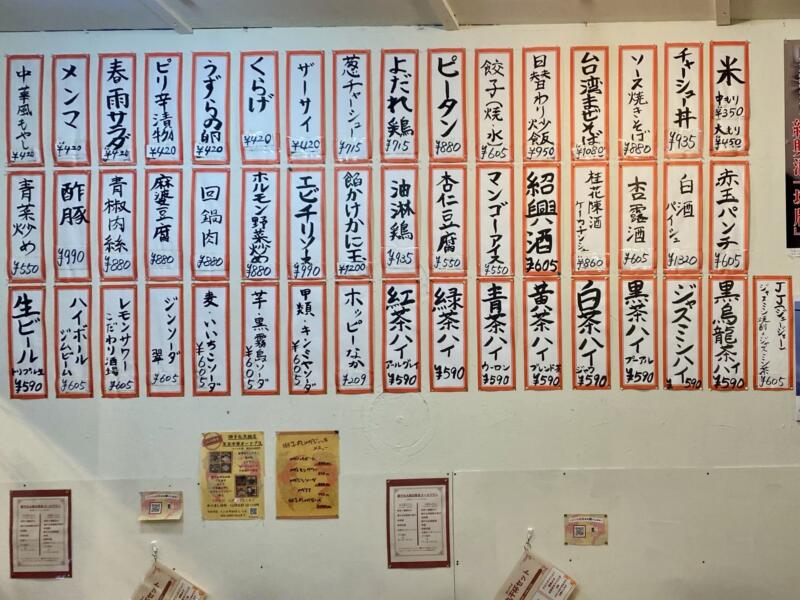 中華風もやし ¥420
メンマ ¥420
春雨サラダ ¥420
ピリ辛漬物 ¥420
うずらの卵 ¥420
くらげ ¥420
ザーサイ ¥420
葱チャーシュー ¥715
よだれ鶏 ¥715
ピータン ¥880
餃子(焼・水) ¥605
日替わり炒飯 ¥950
台湾まぜそば ¥1080
ソース焼きそば ¥880
チャーシュー丼 ¥935
米 中もり ¥350 大もり ¥450
青菜炒め ¥550
酢豚 ¥990
青椒肉絲 ¥880
麻婆豆腐 ¥880
回鍋肉 ¥880
ホルモン野菜炒め ¥880
エビチリソース ¥990
餡かけかに玉 ¥1200
油淋鶏 ¥935
杏仁豆腐 ¥550
マンゴーアイス ¥550
紹興酒 ¥605
桂花陳酒 ケーカチンシュ ¥860
杏露酒 ¥605
白酒 パイシュ ¥1320
赤玉パンチ ¥605
生ビール トリプル生 ¥590
ハイボール ジムビーム ¥605
レモンサワー こだわり酒場 ¥605
ジンソーダ 翠 ¥605
麦・いいちこソーダ ¥605
芋・黒霧島ソーダ ¥605
甲類・キンミヤソーダ ¥605
ホッピーなか ¥209
紅茶ハイ アールグレイ ¥590
緑茶ハイ ¥590
青茶ハイ ウーロン ¥590
黄茶ハイ ブレンド茶 ¥590
白茶ハイ ジャワ ¥590
黒茶ハイ プーアル ¥590
ジャスミンハイ ¥590
黒烏龍茶ハイ ¥590
JJ(ジェージェー) ジャスミン焼酎×ジャスミン茶 ¥605